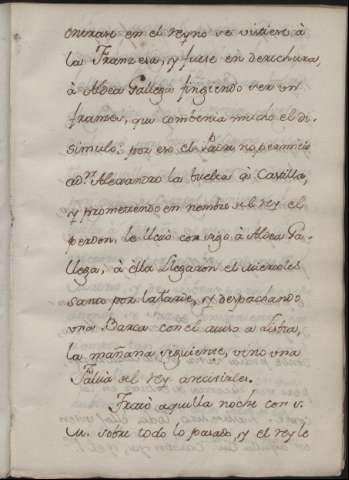 entrase en el reyno se vistiese à
la Franzesa, y fuese en derechura,
à Aldea Gallega fingiendo ser un
frances, que combenia mucho el di-
simulo: por eso el Padre no permitio
ad.ⁿ Alexandro la buelta à Castilla,
y prometiendo en nombre del rey el
perdon, le llevò consigo à Aldea Ga-
llega, à ella llegaron el miercoles
santo por la tarde, y despachando
una Barca con el auiso a Lisboa,
la mañana siguiente, vino una
Falua del rey a recivirles.
Tratò aquella noche con S.
M. sobre todo lo pasado, y el rey le